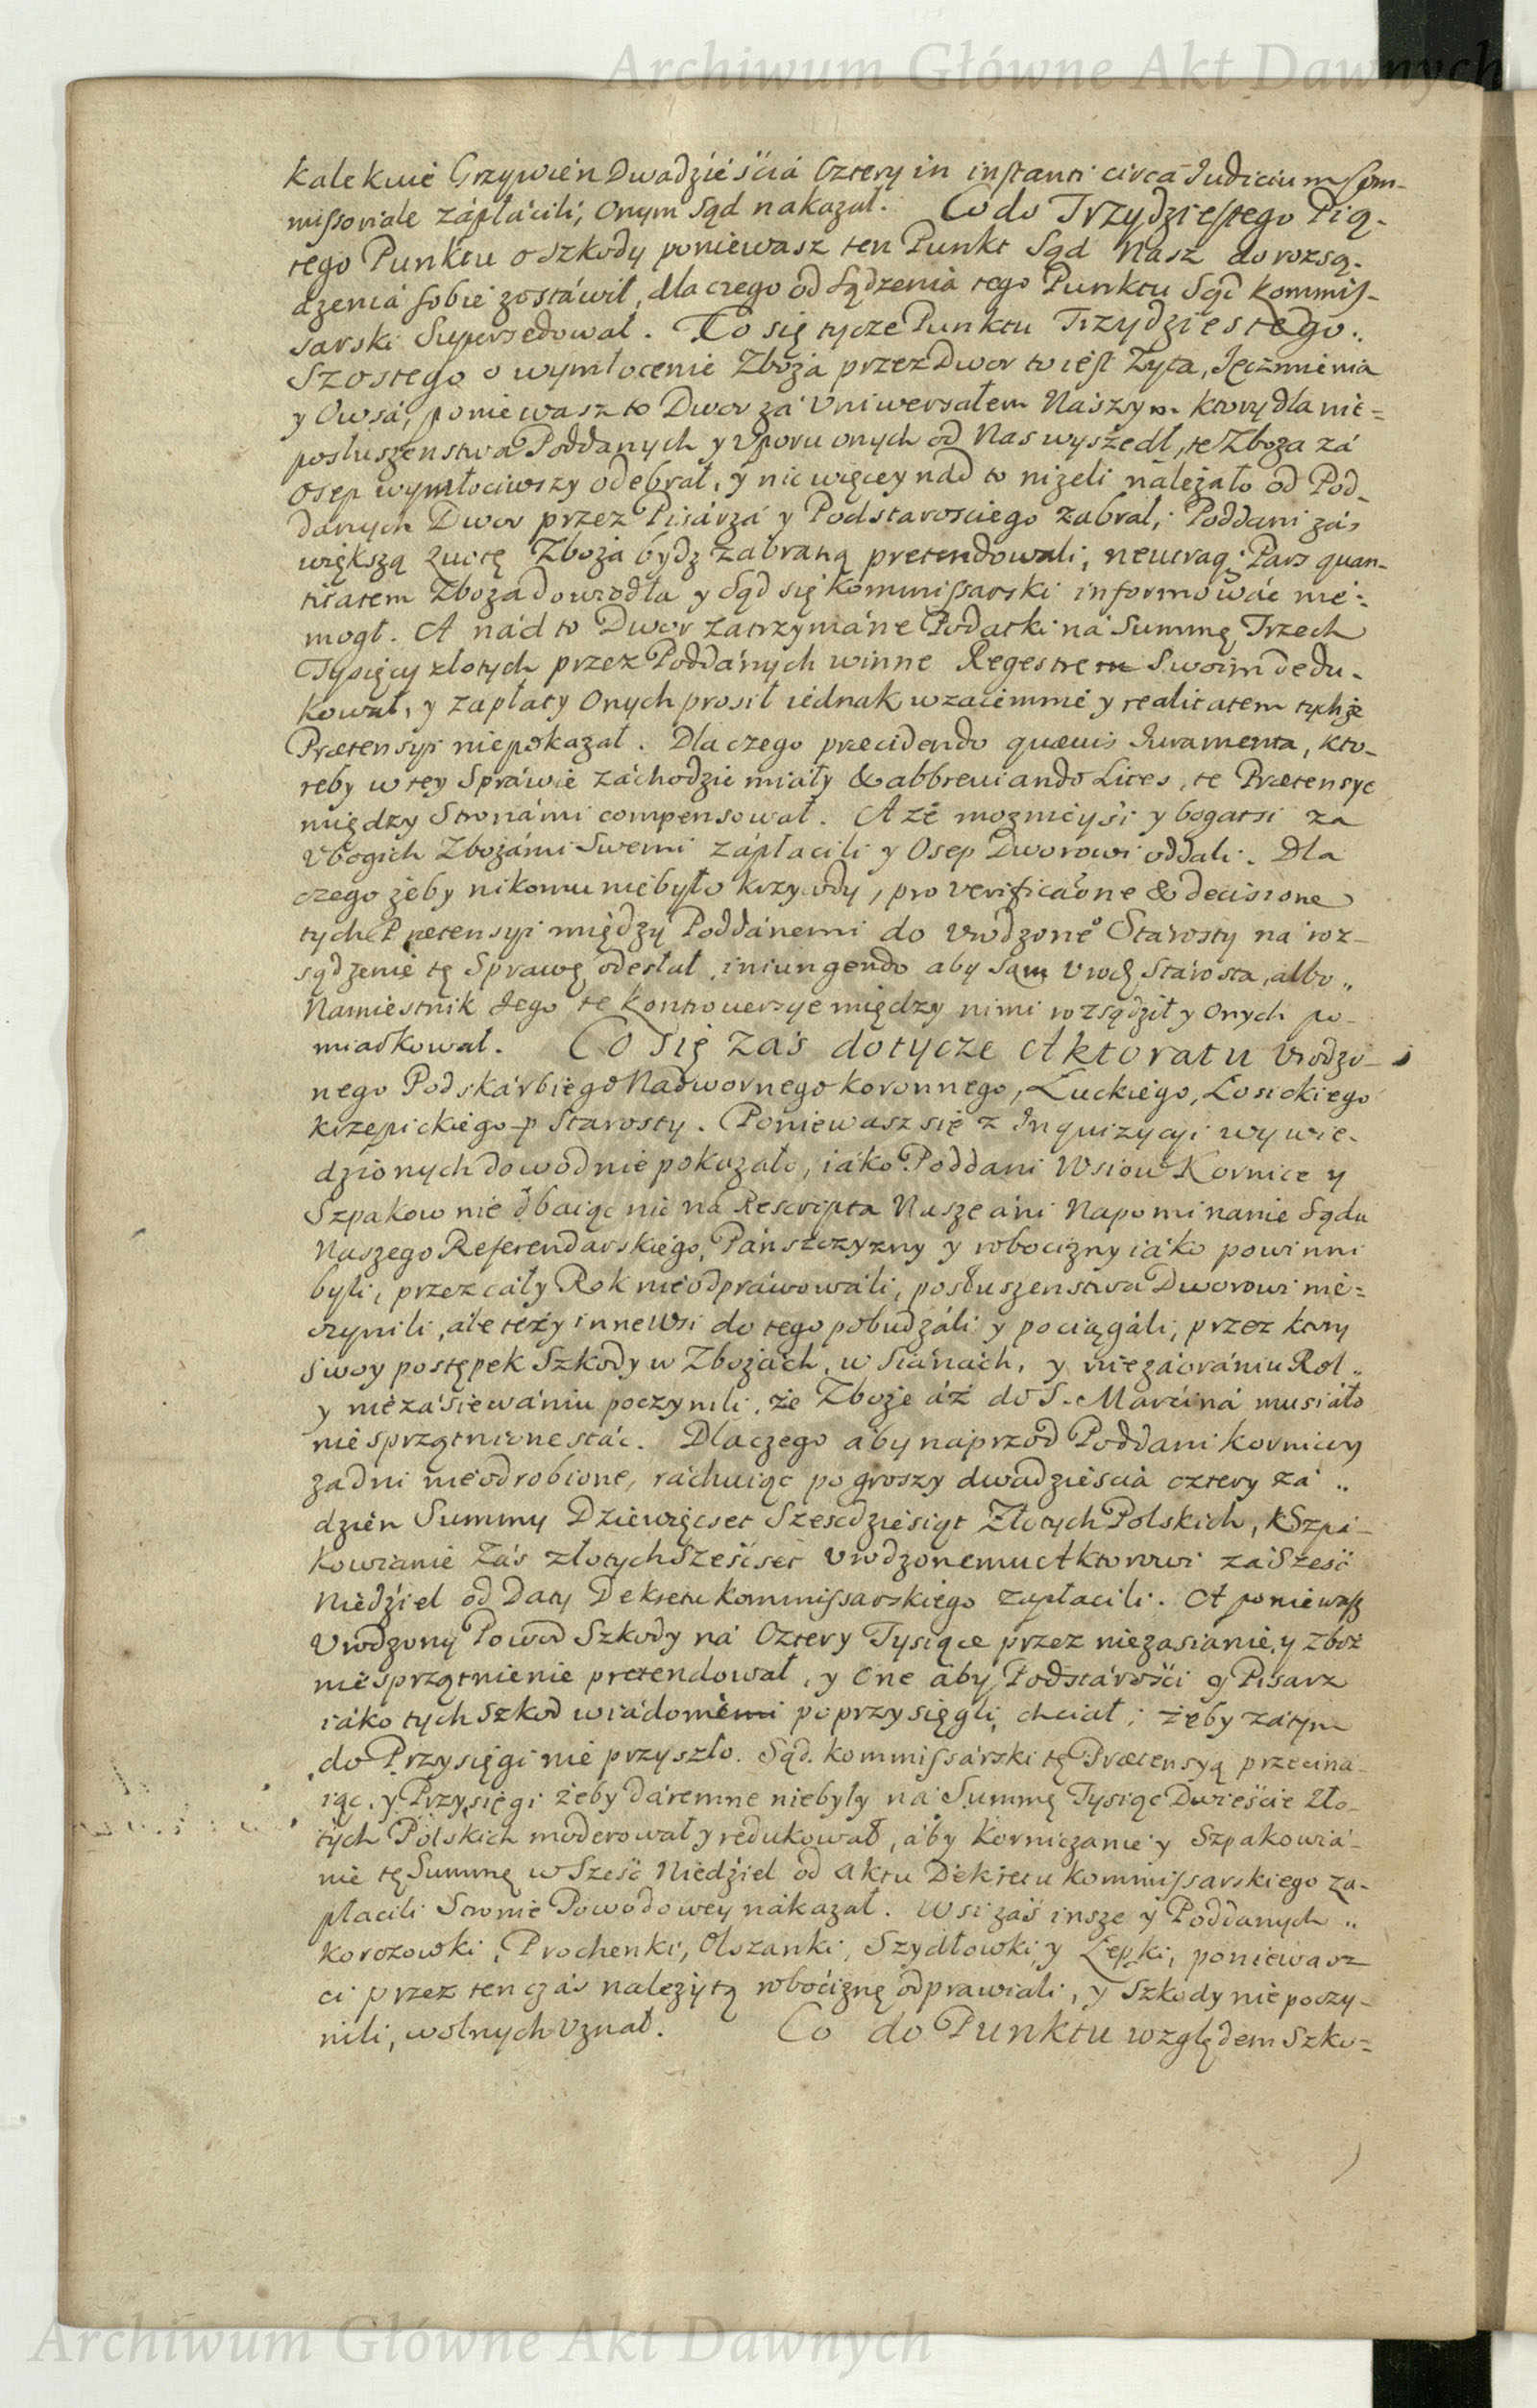 Archiwum Główne Akt Dawnych
kalekuie Grzywien Dwadzieścia Cztery in instanti circa Judicium Com-
missoriale zápłácili, Onym Sąd nakazał. Co do Trzydziestego Pią-
tego Punktu o szkody poniewasz ten Punkt Sąd Nasz do rozsą-
dzenia sobie zostáwił, dla czego od Sądzenia tego Punktu Sąd Kommis-
sarski Supersedował. Co się tycze Punktu Trzydziestego
Szostego o wymłocenie Zboża przez Dwor to iest Zyta, Jęczmienia
y Owsá, poniewasz to Dwor zá Uniwersałem Naszym ktory dla nie=
posłuszenstwa Poddanych y Uporu onych od Nas wyszedł, te Zboża zá
Osep wymłociwszy odebrał, y nic więcey nád to niżeli należało od Pod-
danych Dwor przez Pisárzá y Podstarosciego zabrał, Poddani zás
większą Quotę Zboża bydz zabraną pretendowali, neutraq; Pars quan-
titatem Zboża dowiodła y Sąd się Kommissarski informowáć nie=
mogł. A nád to Dwor zatrzymáne Podatki ná Summę Trzech
Tysięcy złotych przez Poddánych winne Regestrem Swoim dedu-
kował, y zapłaty Onych prosił iednak wzaiemnie y realitatem tychże
Prætensyi niepokazał. Dla czego præcidendo quævis Juramenta, kto-
reby w tey Spráwie záchodzic miały & abbreviando Lites, te Prætensye
między Stronámi compensował. A że moznieysi y bogatsi za
Ubogich Zbożámi Swemi zápłacili y Osep Dworowi oddali. Dla
czego żeby nikomu niebyło krzywdy, pro verificaõne & decisione
tych Prætensyi między Poddánemi do Urodzone° Starosty na roz-
sądzenie tę Sprawę odesłał, iniungendo aby sam Urodz. Stárosta, albo
Namiestnik Jego te kontrowersye między nimi rozsądził y Onych po-
miarkował. Co Się Zás dotycze Aktoratu Urodzo-
nego Podskárbiego Nadwornego Koronnego, Łuckiego, Łosickiego
krzepickiego p Starosty. Poniewasz się z Inquizycyi wywie-
dzionych dowodnie pokazáło, iáko Poddani Wsiow Kornice y
Szpakow nie dbaiąc nic ná Rescripta Nasze áni Napominanie Sądu
Naszego Referendarskiégo, Pánszczyzny y robocizny iáko powinni
byli, przez cáły Rok nieodpráwowáli, posłuszenstwa Dworowi nie=
czynili, ále też y inne Wsi do tego pobudzáli y pociągáli, przez ktory
swoy postępek Szkody w Zbożach, w Siánách, y niezáorániu Rol
y niezásiewániu poczynili, że Zboże áż do S. Marćiná musiáło
nie sprzątnione stać. Dlaczego áby naprzod Poddani Kornicy
zadni nieodrobione, ráchuiąc po groszy dwadzieścia cztery zá
dzien Summy Dziewięcset Szescdziesiąt Złotych Polskich, Szpá-
kowianie Zás złotych Sześcset Urodzonemu Aktorowi zá Sześć
Niedźiel od Daty Dekretu Kommissarskiego zapłacili. A poniewasz
Urodzony Powod Szkody ná Cztery Tysiące przez niezasianie, y zboż
niesprzątnienie pretendował, y One áby Podstárości y Pisarz
iáko tych szkod wiádomi poprzysięgli, chciał; żeby zátym
do Przysięgi nie przyszło. Sąd kommissárski tę Prætensyą przeciná-
iąc, y Przysięgi żeby dáremne niebyły ná Summę Tysiąc Dwieście Zło-
tych Polskich moderował y redukował, áby Korniczanie y Szpakowiá-
nie tę Summę w Sześć Niedźiel od Aktu Dekretu Kommissarskiego za-
płacili Stronie Powodowey nákazał. Wsi zaś insze y Poddanych
Korczowki, Prochenki, Olszanki, Szydłowki, y Łepki, poniewasz
ci przez ten czás należytą robociznę odprawiali, y Szkody nie poczy-
nili, wolnych Uznał. Co do Punktu względem Szko=
Archiwum Główne Akt Dawnych